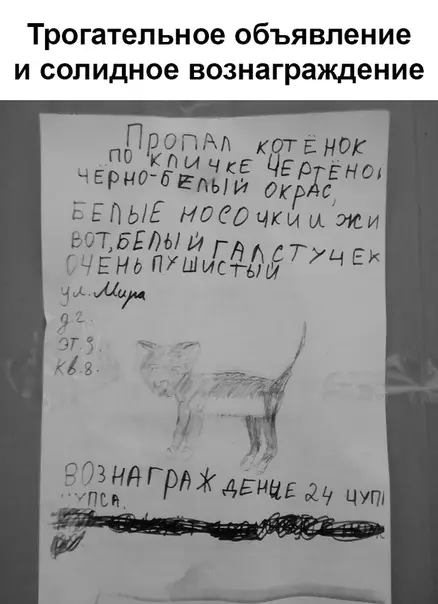 Трогательное объявление
и солидное вознаграждение
ПРОПАЛ КОТЁНОК
ПО КЛИЧКЕ ЧЕРТЁНО
ЧЁРНО-БЕЛЫЙ ОКРАС,
БЕЛЫЕ НОСОЧКИ И ЖИ
ВОТ, БЕЛЫЙ ГАЛСТУЧЕК
ОЧЕНЬ ПУШИСТЫЙ
ул. Мира
д 2.
ЭТ. 3.
Кв. 8.
ВОЗНАГРАЖДЕНИЕ 24 ЧУП
ЧУПСА.